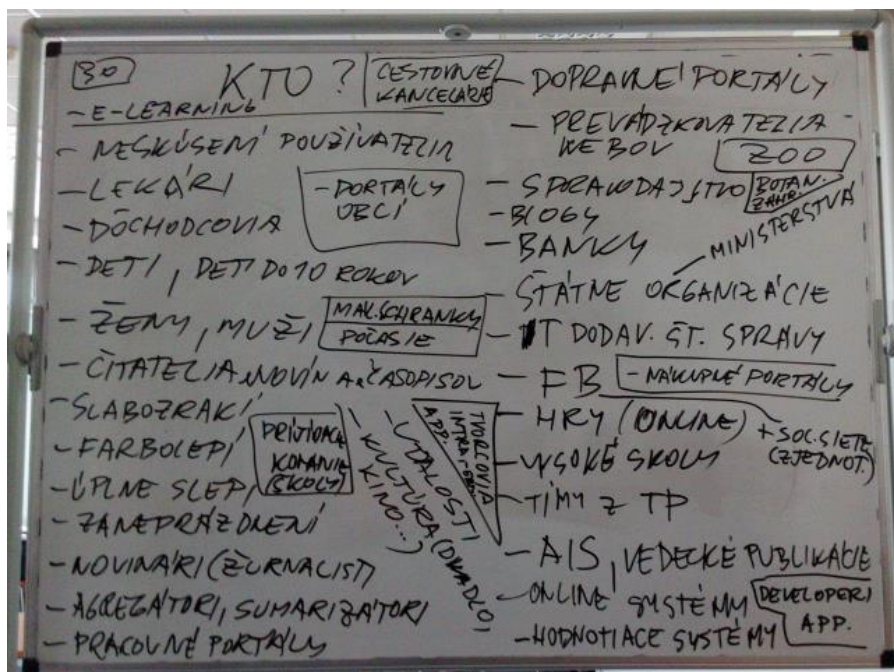 30
KTO?
CESTOVNÉ
KANCELÁRIE
- E-LEARNING
- NESKÚSENÍ POUŽÍVATELIA
- LEKÁRI
- PORTÁLY
OBCÍ
- DÔCHODCOVIA
- DETI, DETI DO 10 ROKOV
- ŽENY, MUŽI
MAIL.SCHRANKY
POČASIE
- ČITATELIA NOVÍN A ČASOPISOV
- SLABOZRAKÍ
- FARBOLEPÍ
- ÚPLNE SLEPÍ
KOMÁNIE
(ŠKOLY)
- ZANEPRÁZDNENÍ
- NOVINÁRI (ŽURNALISTI)
- AGREGÁTORI, SUMARIZÁTORI
- PRACOVNÉ PORTÁLY
- UDALOSTI
- KULTÚRA (DIVADLO,
KINO...)
TVORCOVIA
APP.
- DOPRAVNÉ PORTÁLY
- PREVÁDZKOVATELIA
WEBOV
ZOO
- SPRAVODAJSTVO
BOTAN.
ZAHR.
- BLOGY
- BANKY
MINISTERSTVÁ
- ŠTÁTNE ORGANIZÁCIE
- IT DODAV. ŠT. SPRÁVY
- FB
- NÁKUPNÉ PORTÁLY
+ SOC. SIETE
(ZJEDNOT.)
- HRY (ONLINE)
- VYSOKÉ ŠKOLY
- TÍMY Z TP
- AIS, VEDECKÉ PUBLIKÁCIE
- ONLINE SYSTÉMY
DEVELOPERI
APP.
- HODNOTIACE SYSTÉMY